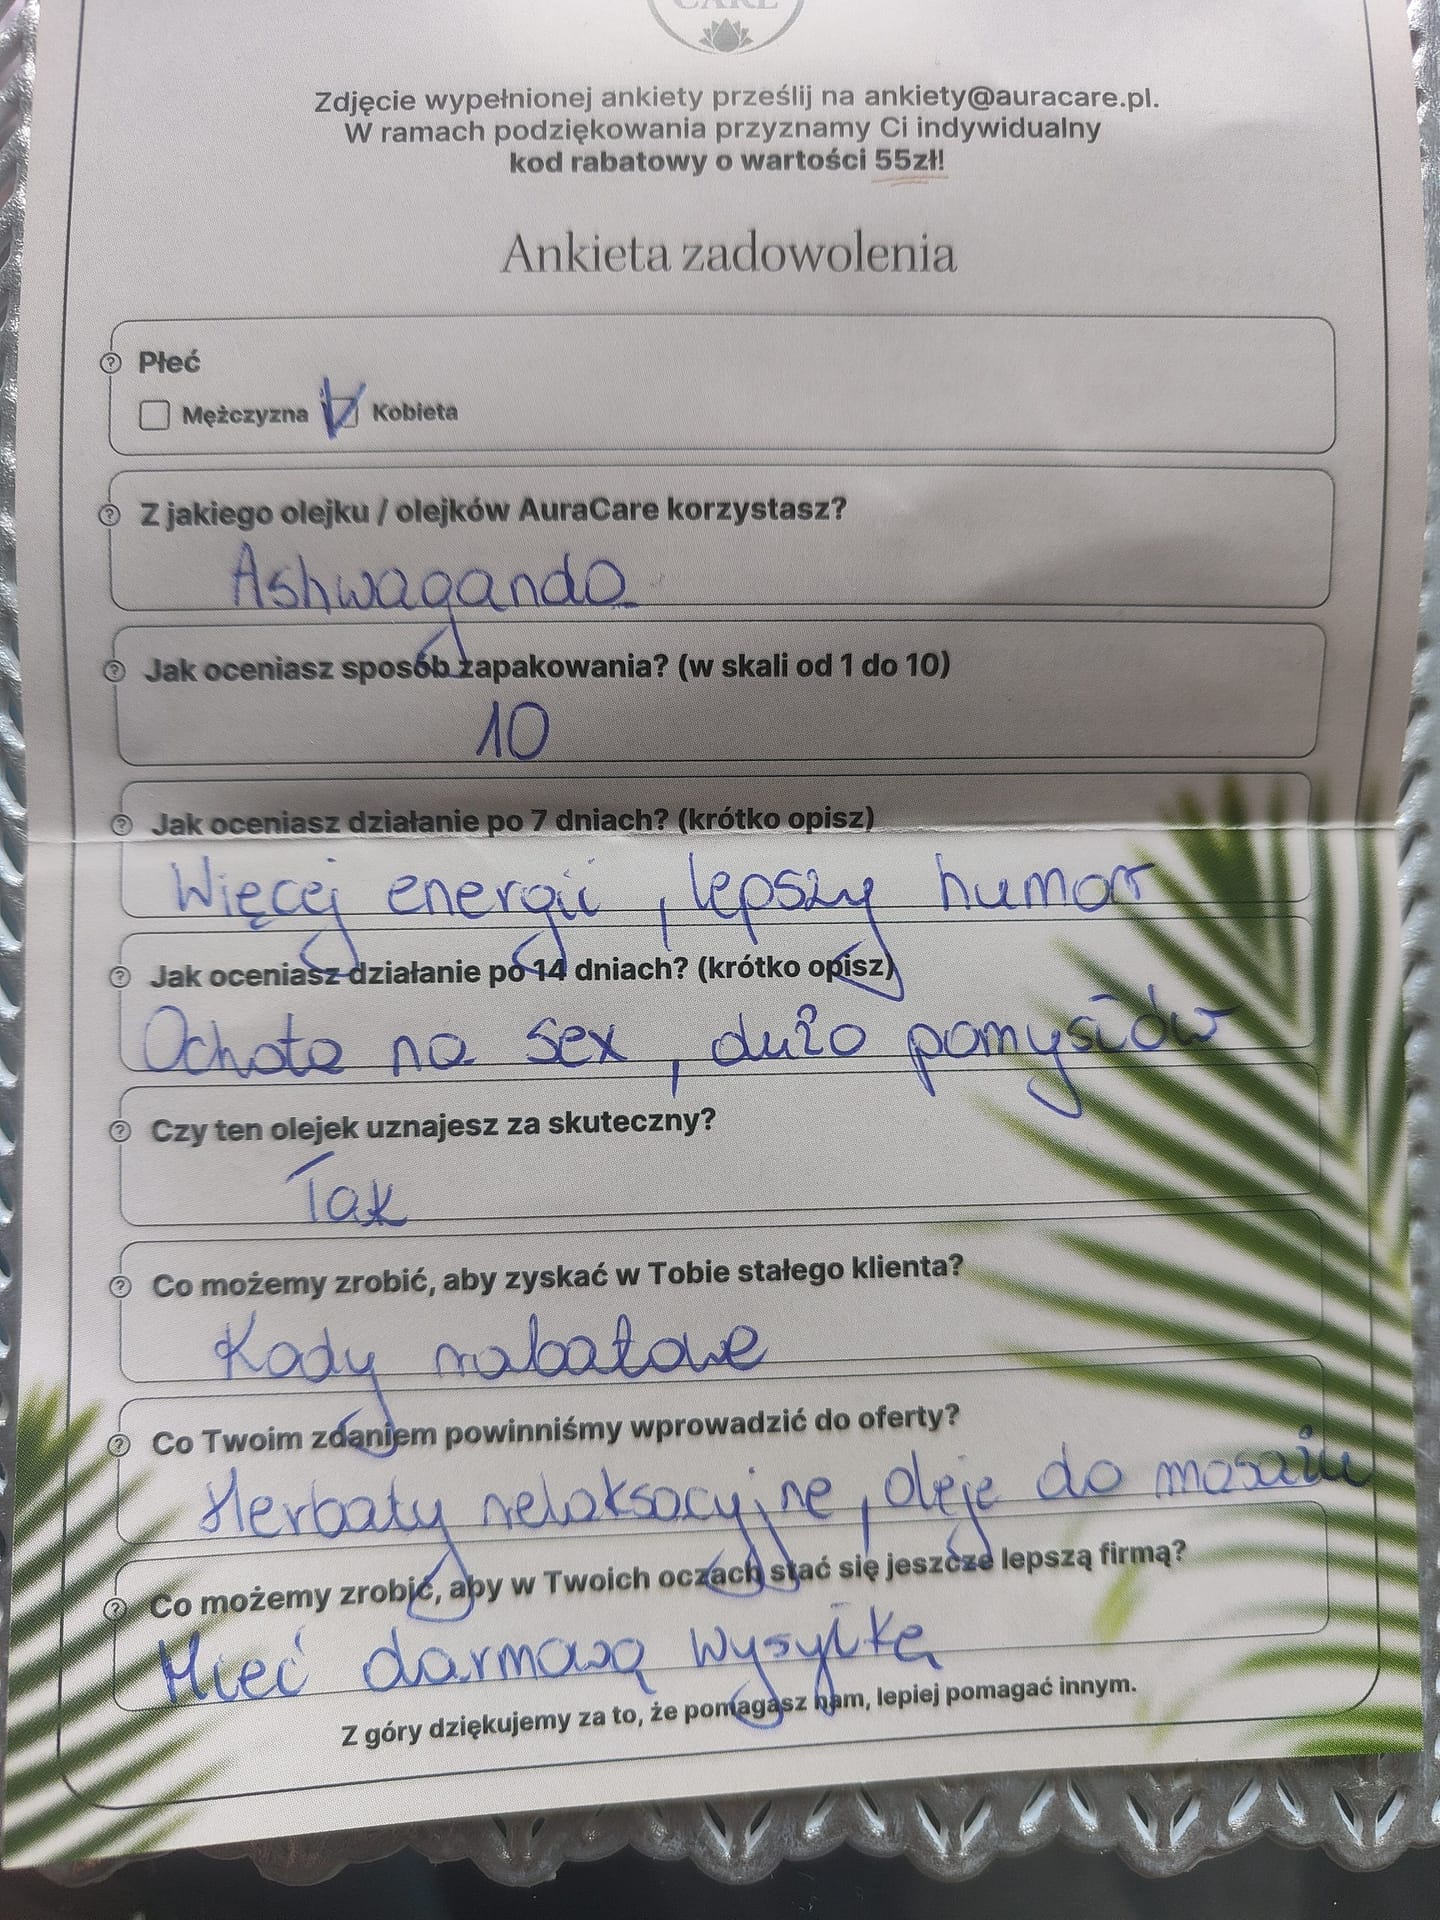 CARE
Zdjęcie wypełnionej ankiety prześlij na ankiety@auracare.pl.
W ramach podziękowania przyznamy Ci indywidualny
kod rabatowy o wartości 55zł!
Ankieta zadowolenia
Płeć
Mężczyzna Kobieta
Z jakiego olejku / olejków AuraCare korzystasz?
Ashwaganda
Jak oceniasz sposób zapakowania? (w skali od 1 do 10)
10
Jak oceniasz działanie po 7 dniach? (krótko opisz)
Więcej energii, lepszy humor
Jak oceniasz działanie po 14 dniach? (krótko opisz)
Ochota na sex, dużo pomysłów
Czy ten olejek uznajesz za skuteczny?
Tak
Co możemy zrobić, aby zyskać w Tobie stałego klienta?
Kody rabatowe
Co Twoim zdaniem powinniśmy wprowadzić do oferty?
Herbaty relaksacyjne, oleje do masażu
Co możemy zrobić, aby w Twoich oczach stać się jeszcze lepszą firmą?
Mieć darmową wysyłkę
Z góry dziękujemy za to, że pomagasz nam, lepiej pomagać innym.